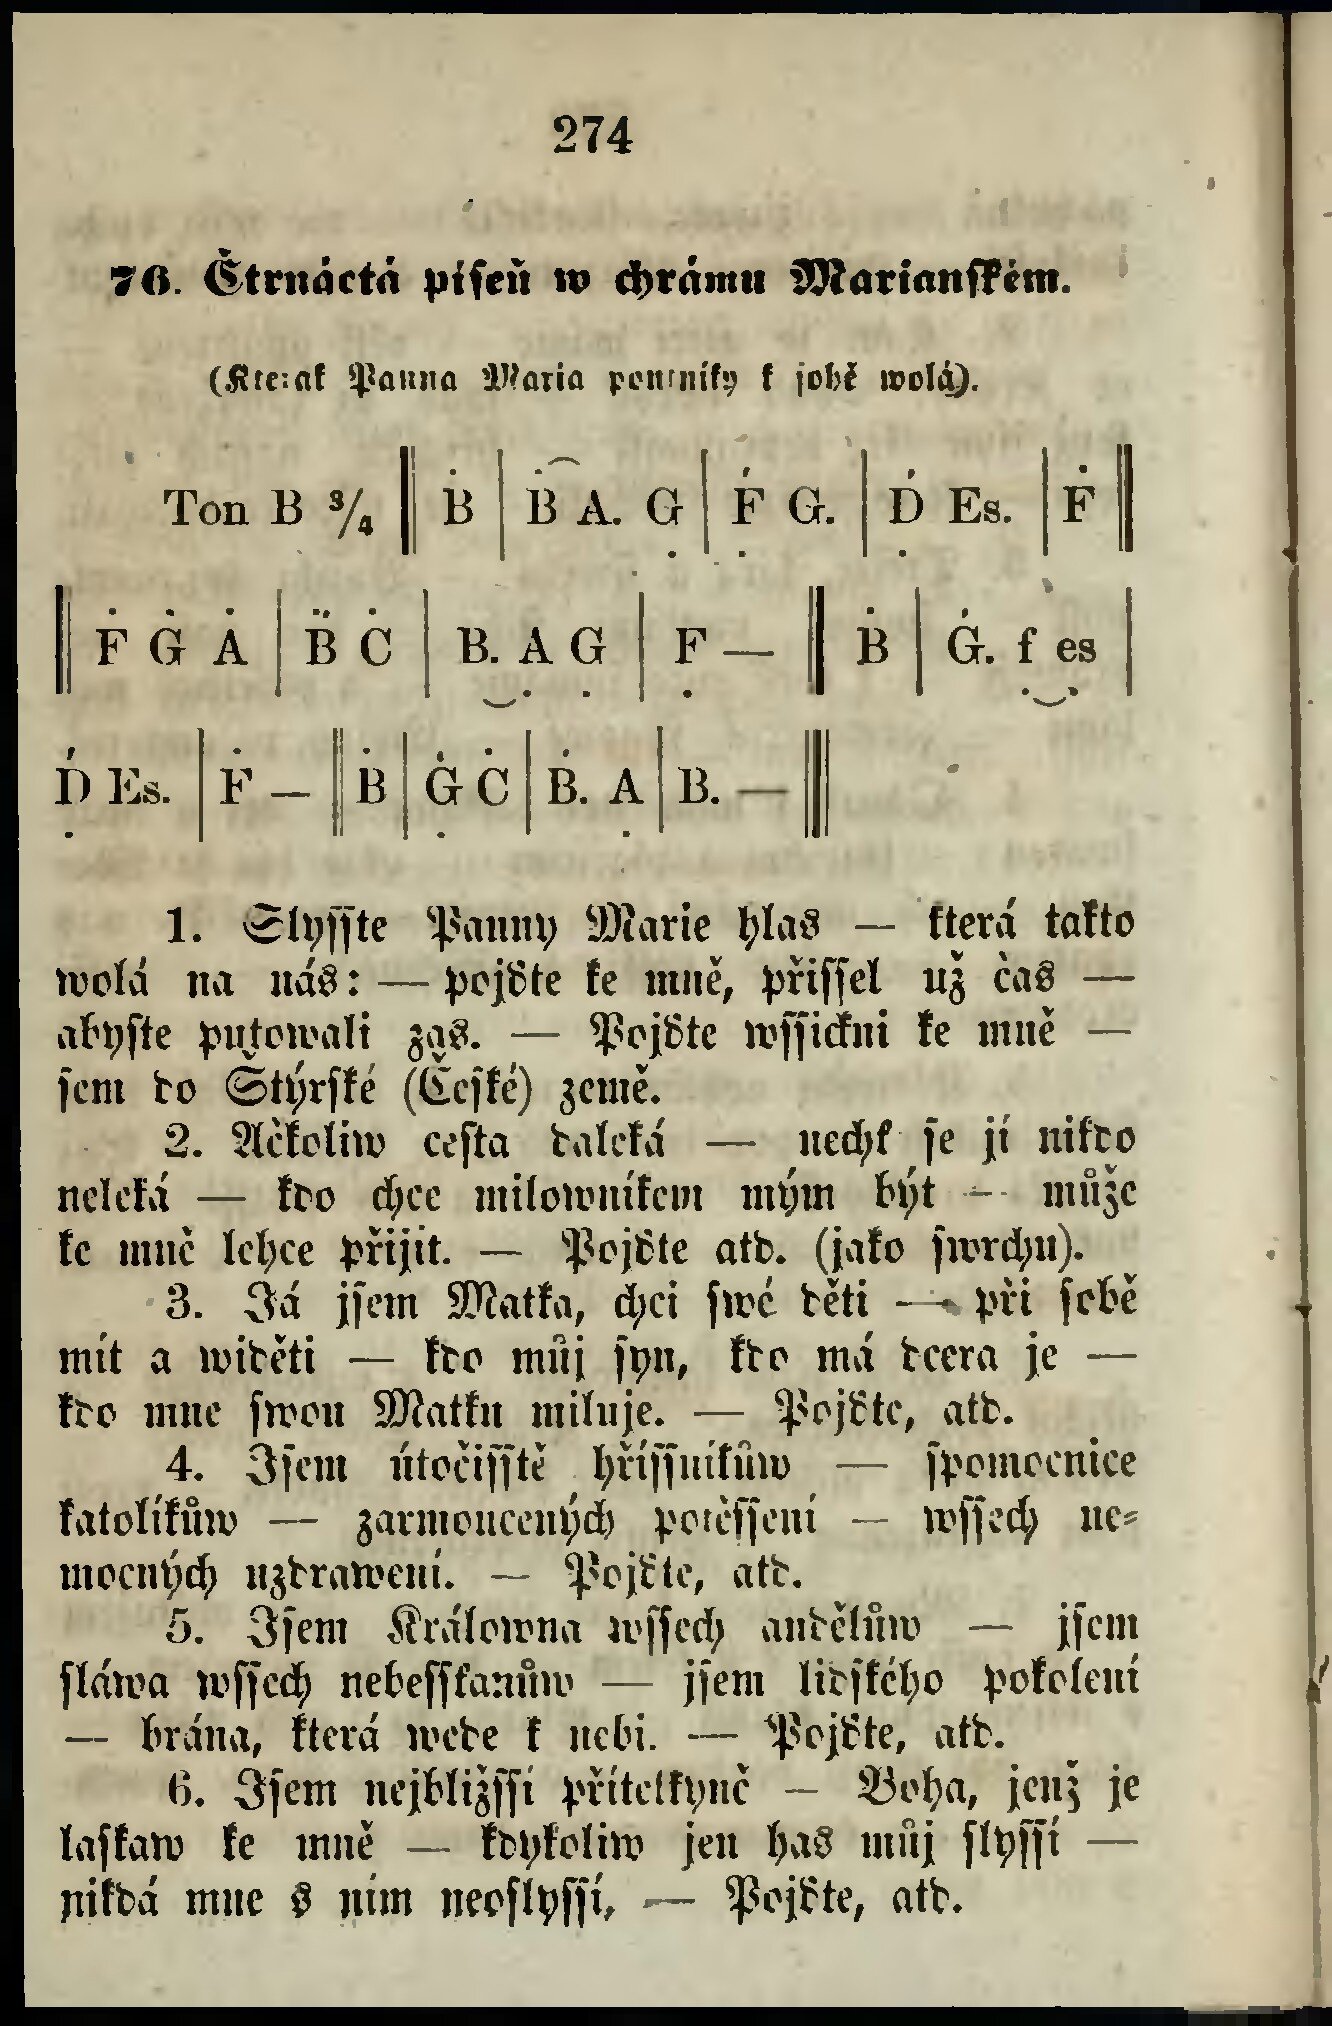 274
76. Čtrnáctá píseň w chrámu Marianském.
(Kterak Panna Maria poutníky k sobě wolá).
Ton B 3/4 || B | B A. G | F G. | D Es. | F ||
|| F G A | B C | B. A G | F — || B | G. f es |
D Es. | F — || B | G C | B. A | B. — |||
1. Slyšste Panny Marie hlas — která takto
wolá na nás: — pojďte ke mně, přissel už čas —
abyste putowali zas. — Pojďte wssickni ke mně —
sem do Štýrské (České) země.
2. Ačkoliw cesta daleká — nechť se jí nikdo
neleká — kdo chce milowníkem mým být — může
ke mně lehce přijit. — Pojďte atd. (jako swrchu).
3. Já jsem Matka, chci swé děti — při sobě
mít a widěti — kdo můj syn, kdo má dcera je —
kdo mne swou Matku miluje. — Pojďte, atd.
4. Jsem útočisstě hříssníkůw — spomocnice
katolíkůw — zarmoucených potěssení — wssech ne=
mocných uzdrawení. — Pojďte, atd.
5. Jsem Králowna wssech andělůw — jsem
sláwa wssech nebessťanůw — jsem lidského pokolení
— brána, která wede k nebi. — Pojďte, atd.
6. Jsem nejbližssí přítelkyně — Boha, jenž je
laskaw ke mně — kdykoliw jen has můj slyssí —
nikdá mne s ním neoslyssí, — Pojďte, atd.